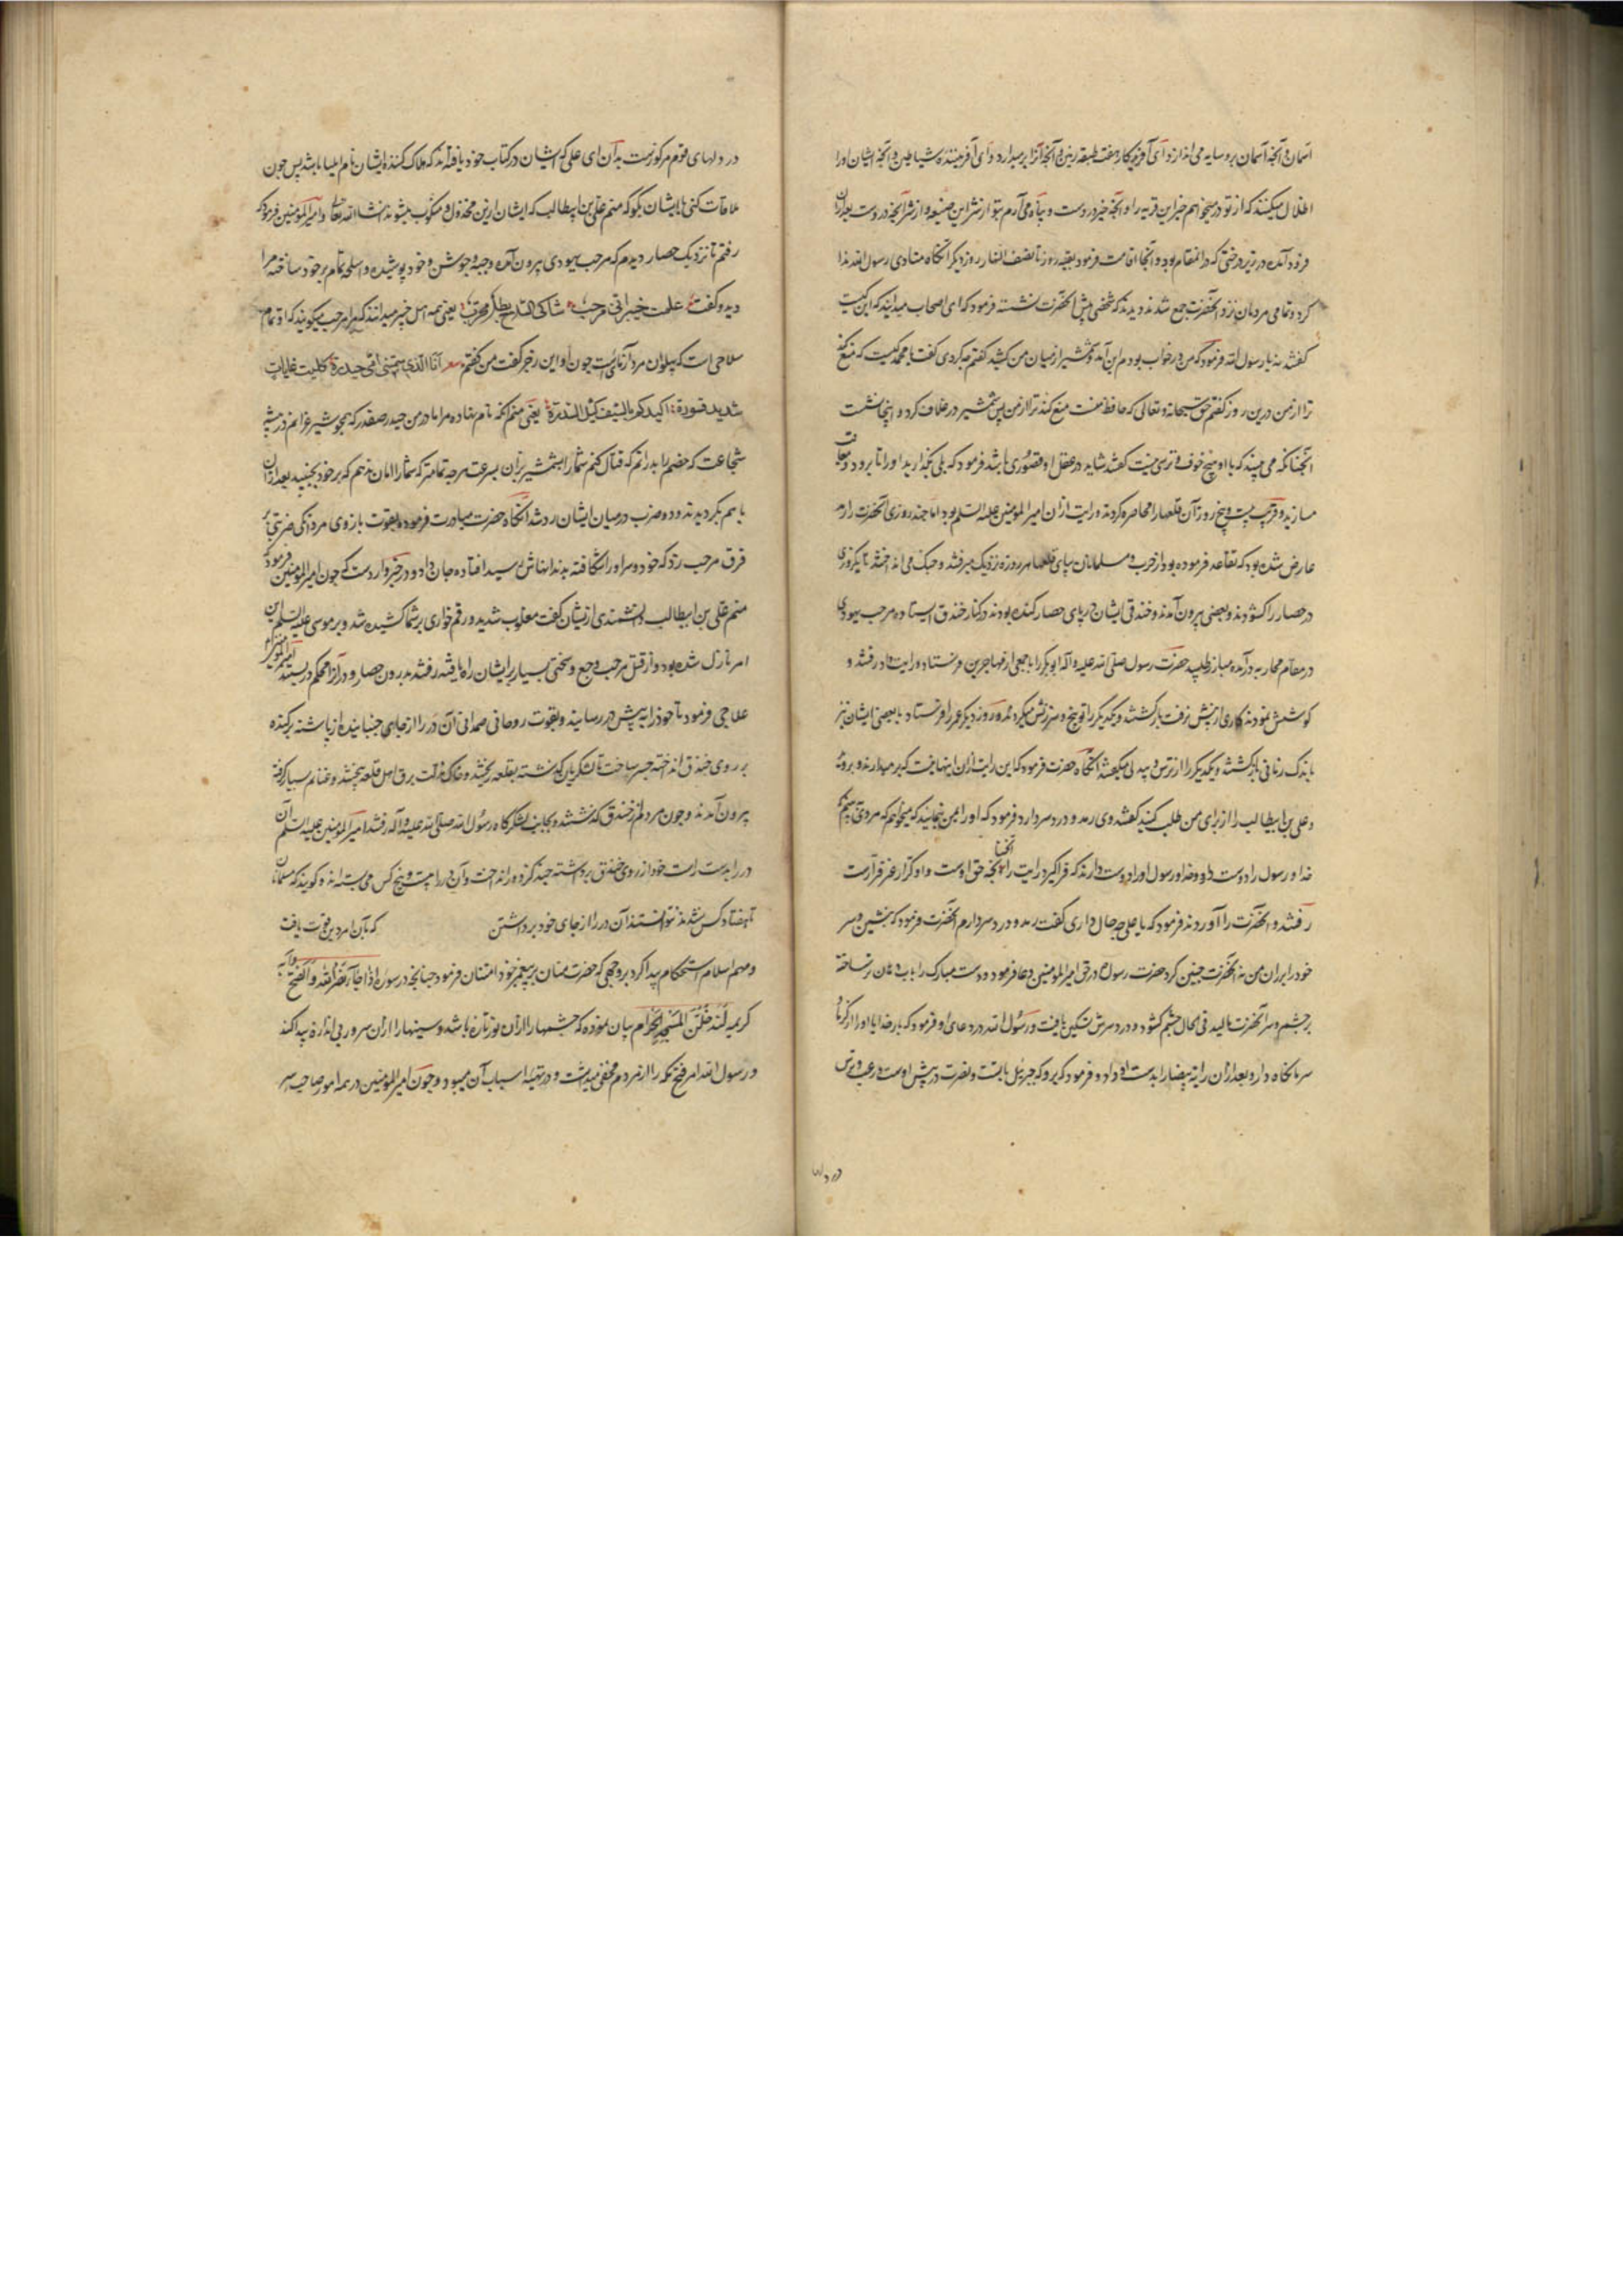 آسمان و آنچه آسمان برو سایه می اندازد و ای آفریدگار هفت طبقه زمین و آنچه آنرا برمیدارد و ای آفریننده شیاطین و آنچه ایشان اورا
اظلال میکنند که از تو درمیخواهم خیر این قریه را و آنچه خیر در وست و پناه می آرم بتو از شر این ضیعه و از شر آنچه در وست بعد ازان
فرود آمده در زیر درختی که در انمقام بود و آنجا اقامت فرمود بقیه روز تا نصف النهار روز دیگر آنگاه منادی رسول الله ندا
کرد و تمامی مردمان نزد آنحضرت جمع شدند دیدند که شخصی پیش آنحضرت نشسته فرمود که ای اصحاب میدانید که این کیست
گفتند نه یا رسول الله فرمود که من در خواب بودم این آمد و شمشیر از میان من کشید گفتم چه کردی گفت یا محمد کیست که منع کند
ترا از من درین روز گفتم حق سبحانه و تعالی که حافظ منست منع کند ترا از من پس شمشیر در غلاف کرد و اینجا نشست
آنچنانکه می بینید که با او هیچ خوف و ترسی نیست گفتند شاید در عقل او قصوری باشد فرمود که بلی بگذارید اورا تا برود و معاقبت
مسازید و قریب بیست و پنج روز آن قلعها را محاصره کردند و رایت ازان امیر المؤمنین علیه السلم بود اما چند روزی آنحضرت را رمد
عارض شده بود که تقاعد فرموده بود از حرب و مسلمانان بپای قلعها هر روزه نزدیک میرفتند و جنگ می انداختند تا یکروزی
در حصار را گشودند و بعضی بیرون آمدند و خندقی ایشان در پای حصار کنده بودند در کنار خندق ایستاده مرحب یهودی
در مقام محاربه درآمده مبارز طلبید حضرت رسول صلی الله علیه و آله ابوبکر را با جمعی از مهاجرین فرستاد و رایت داد رفتند و
کوشش نمودند کاری از پیش نرفت بازگشتند و یکدیگر را توبیخ و سرزنش میکردند و روز دیگر عمر را فرستاد با بعضی ایشان نیز
باندک زمانی بازگشتند و یکدیگر را از ترس و بیدلی میگفتند آنگاه حضرت فرمود که این رایت ازان اینها نیست که برمیدارند و بروند
و علی بن ابیطالب را از برای من طلب کنید گفتند وی رمد و درد سر دارد فرمود که اورا بمن بنمایید که میخواهم که مردی بینم که
خدا و رسول را دوست دارد و خدا و رسول اورا دوست دارند که فراگیرد رایت را آنچنانچه حق اوست و او کرار غیر فرارست
رفتند و آنحضرت را آوردند فرمود که یا علی چه حال داری گفت رمد و درد سر دارم آنحضرت فرمود که بنشین و سر
خود را بران من نه آنحضرت چنین کرد حضرت رسول در حق امیر المؤمنین دعا فرمود و دست مبارک را باب دهان تر ساخته
بر چشم و سر آنحضرت مالید فی الحال چشم گشود و درد سرش تسکین یافت و رسول الله در دعای او فرمود که بار خدایا اورا از گرما و
سرما نگاه دار و بعد ازان رایة بیضا را بدست او داد و فرمود که برو که جبرئیل با تست و نصرت در پیش اوست و رعب و ترس
در دلها
در دلهای قوم مرکوزست بدان ای علی که ایشان در کتاب خود یافته اند که هلاک کننده ایشان نام ایلیا باشد پس چون
ملاقات کنی با ایشان بگو که منم علی بن ابیطالب که ایشان ازین مخذول و منکوب میشوند انشاء الله تعالی و امیر المؤمنین فرمود که
رفتم تا نزدیک حصار دیدم که مرحب یهودی بیرون آمده و جبه و جوشن و خود پوشیده و اسلحه تمام بر خود ساخته مرا
دید و گفت علمت خیبر انی مرحب شاکی السلاح بطل مجرب یعنی همه اهل خیبر میدانند که مرا مرحب میگویند که او تمام
سلاحی است که پهلوان مرد آزمائست چون او این رجز گفت من گفتم شعر انا الذی سمتنی امی حیدرة کلیث غابات
شدید قسورة اکیلکم بالسیف کیل السندرة یعنی منم آنکه نام نهاده مرا مادر من حیدر صفدر که همچو شیر غرانم در بیشه
شجاعت که خصم را بدرانم که قتال کنم شما را بشمشیر بران بسرعت هرچه تمامتر که شما را امان ندهم که بر خود بجنبید بعد ازان
با هم بگردیدند و دو ضرب در میان ایشان رد شد آنگاه حضرت مبادرت فرموده بقوت بازوی مردانگی ضربتی بر
فرق مرحب زد که خود و سر اورا شکافته بدندانهاش رسید افتاده جان داد و در خبر وارد است که چون امیر المؤمنین فرمود که
منم علی بن ابیطالب دانشمندی ازیشان گفت مغلوب شدید و رقم خواری بر شما کشیده شد و بر موسی علیه السلم این
امر نازل شده بود و از قتل مرحب وجع و سختی بسیار بر ایشان راه یافته رفتند بدرون حصار و در آنرا محکم در بستند امیر المؤمنین
علاجی فرمود تا خود را به پیش در رسانید و بقوت روحانی صمدانی آن در را از جای جنبانیده از پاشنه برکنده
بر روی خندق انداخته جسر ساخت تا لشکریان گذشته بقلعه ریختند و خاک مذلت بر فرق اهل قلعه بیختند و غنایم بسیار گرفته
بیرون آمدند و چون مردم از خندق گذشتند و بجانب لشکرگاه رسول الله صلی الله علیه و آله رفتند امیر المؤمنین علیه السلم آن
در را بدست راست خود از روی خندق برداشته چند گز دور انداخت و آن در را بیست و پنج کس می بسته اند و گویند که مسلمانان
تا هفتاد کس شدند نتوانستند آن در را از جای خود برداشتن که بآن امر دین قوت یافت
و مهم اسلام استحکام پیدا کرد بروجهی که حضرت منان بر پیغمبر خود امتنان فرمود چنانچه در سوره اذا جاء نصر الله والفتح و آیه
کریمه لتدخلن المسجد الحرام بیان نموده که چشمها را ازان نور تازه باشد و سینها را ازان سرور بی اندازه پیدا کند
و رسول الله امر فتح مکه را از مردم مخفی میداشت و در تهیه اسباب آن میبود و چون امیر المؤمنین در همه امور صاحب سر